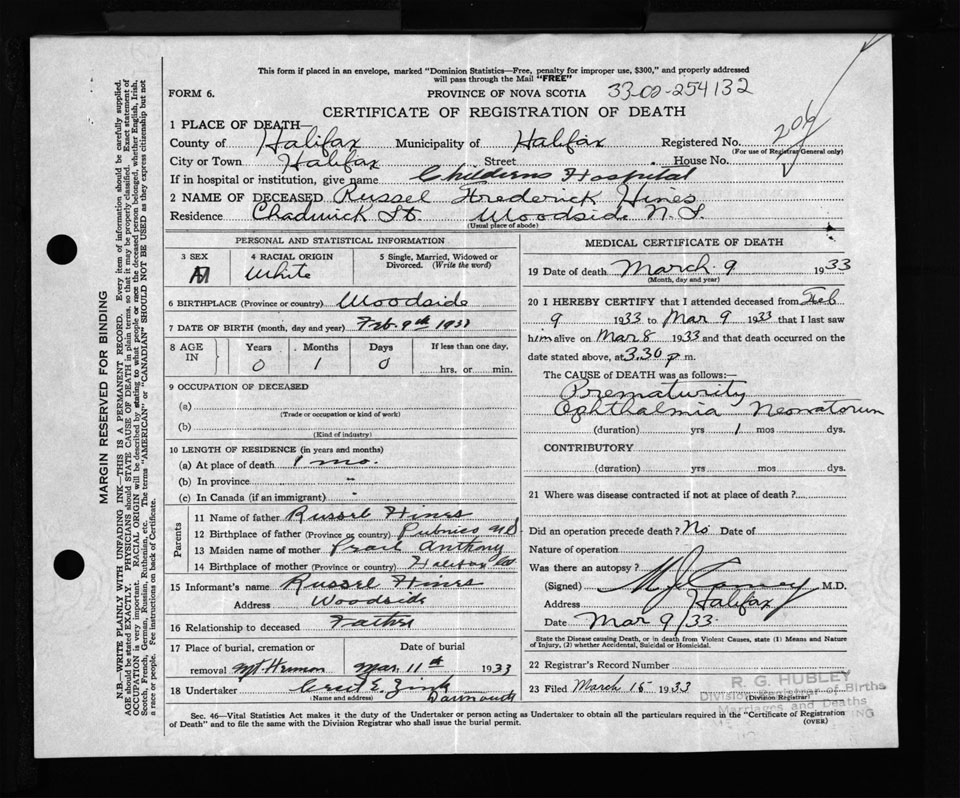 This form if placed in an envelope, marked "Dominion Statistics—Free, penalty for improper use, $300," and properly addressed
will pass through the Mail "FREE"
FORM 6.
PROVINCE OF NOVA SCOTIA 33-00-254132
CERTIFICATE OF REGISTRATION OF DEATH
1 PLACE OF DEATH—
County of Halifax Municipality of Halifax Registered No. 209
(For use of Registrar General only)
City or Town Halifax Street House No.
If in hospital or institution, give name Childerns Hospital
2 NAME OF DECEASED Russel Frederick Hines
Residence Chadwick St. Woodside N.S.
(Usual place of abode)
PERSONAL AND STATISTICAL INFORMATION
3 SEX 4 RACIAL ORIGIN 5 Single, Married, Widowed or
Divorced. (Write the word)
M White
6 BIRTHPLACE (Province or country) Woodside
7 DATE OF BIRTH (month, day and year) Feb. 9th 1933
8 AGE IN Years Months Days If less than one day,
0 1 0 hrs. or min.
9 OCCUPATION OF DECEASED
(a)
(Trade or occupation or kind of work)
(b)
(Kind of industry)
10 LENGTH OF RESIDENCE (in years and months)
(a) At place of death 1 mo.
(b) In province "
(c) In Canada (if an immigrant) "
Parents
11 Name of father Russel Hines
12 Birthplace of father (Province or country) Pubnico N S
13 Maiden name of mother Pearl Anthony
14 Birthplace of mother (Province or country) Halifax Co
15 Informant's name Russel Hines
Address Woodside
16 Relationship to deceased Father
17 Place of burial, cremation or Date of burial
removal Mt. Hermon Mar. 11th 1933
18 Undertaker Cecil E. Zink
(Name and address) Darmouth
MEDICAL CERTIFICATE OF DEATH
19 Date of death March 9 1933
(Month, day and year)
20 I HEREBY CERTIFY that I attended deceased from Feb
9 1933 to Mar 9 1933 that I last saw
him alive on Mar 8 1933 and that death occurred on the
date stated above, at 3.30 p m.
The CAUSE of DEATH was as follows:—
Prematurity
Ophthalmia Neonatorum
(duration) yrs 1 mos dys.
CONTRIBUTORY
(duration) yrs mos dys.
21 Where was disease contracted if not at place of death ?
Did an operation precede death ? No Date of
Nature of operation
Was there an autopsy ?
(Signed) M.D.
Address Halifax
Date Mar 9/33.
State the Disease causing Death, or in death from Violent Causes, state (1) Means and Nature
of Injury, (2) whether Accidental, Suicidal or Homicidal.
22 Registrar's Record Number
23 Filed March 15 1933
(Division Registrar)
R. G. HUBLEY
Division Registrar of Births
Marriages and Deaths
Sec. 46—Vital Statistics Act makes it the duty of the Undertaker or person acting as Undertaker to obtain all the particulars required in the "Certificate of Registration
of Death" and to file the same with the Division Registrar who shall issue the burial permit. (OVER)
MARGIN RESERVED FOR BINDING
N.B.—WRITE PLAINLY WITH UNFADING INK—THIS IS A PERMANENT RECORD. Every item of information should be carefully supplied.
AGE should be stated EXACTLY. PHYSICIANS should STATE CAUSE OF DEATH in plain terms, so that it may be properly classified. Exact statement of
OCCUPATION is very important. RACIAL ORIGIN will be described by stating to what people or race the deceased person belonged, whether English, Irish,
Scotch, French, German, Russian, Ruthenian, etc. The terms "AMERICAN" or "CANADIAN" SHOULD NOT BE USED as they express citizenship but not
a race or people. See instructions on back of Certificate.